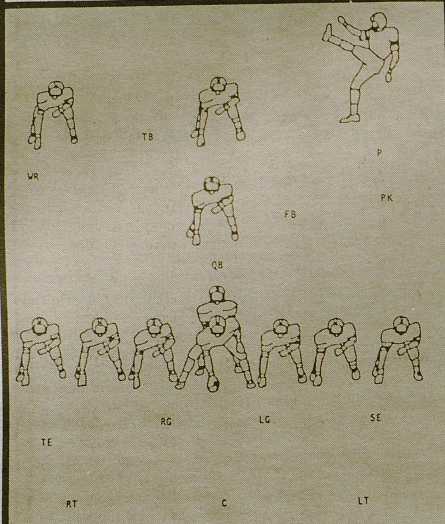 TB
P
WR
PK
FB
QB
RG
LG
SE
TE
RT
C
LT